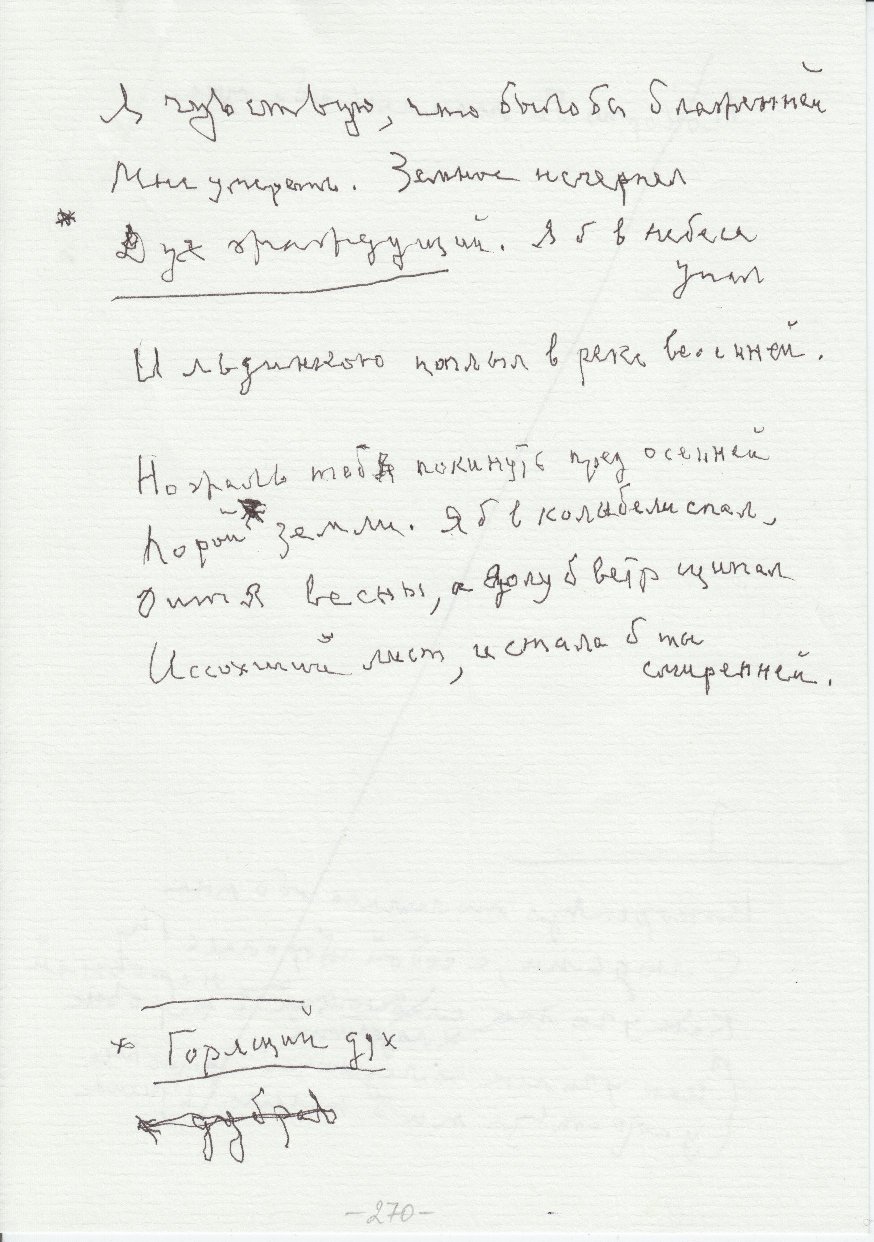 Я чувствую, что было бы блаженней
Мне умереть. Земное исчерпал
* Дух жаждущий. Я б в небеса
упал
И льдинкою поплыл в реке весенней.
Но жаль тебя покинуть пред осенней
Порой земли. Я б в колыбели спал,
Дитя весны, а долу б ветр щипал
Иссохший лист, и стала б ты
смиренней.
* Горящий дух
-270-